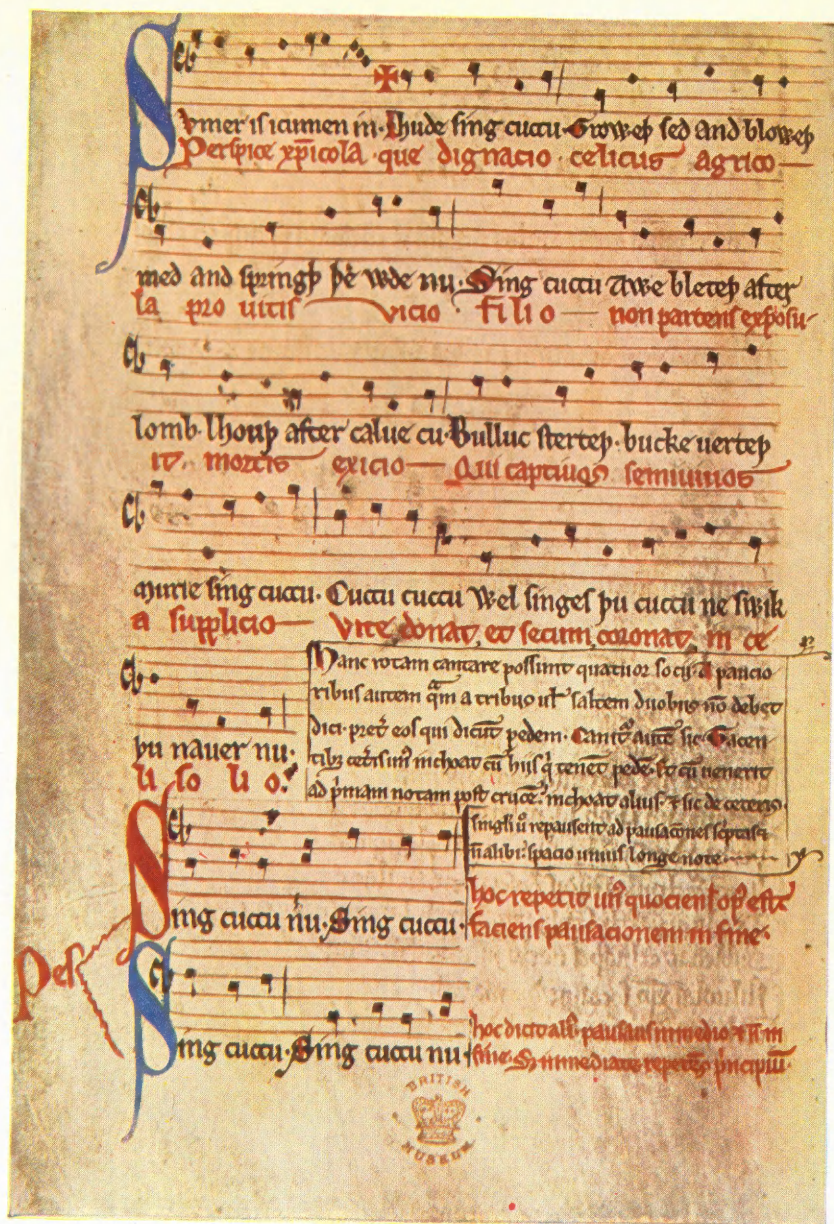 Svmer is icumen in. Lhude sing cuccu. Groweþ sed and bloweþ
Perspice xp̄icola que dignacio celicus agrico
med and springþ þe wde nu. Sing cuccu Awe bleteþ after
la pro uitis vicio filio non parcens exposu-
lomb. lhouþ after calue cu. Bulluc sterteþ. bucke uerteþ
it mortis exicio Qui captiuos semiuiuos
murie sing cuccu. Cuccu cuccu Wel singes þu cuccu ne swik
a supplicio Vite donat et secum coronat in ce
þu nauer nu.
li so li o.
Hanc rotam cantare possunt quatuor socij. A paucio
ribus autem qͣm a tribus uł saltem duobus nō debet
dici. pret̉ eos qui dicūt pedem. Canit᷑ autē sic. Tacen
tibꝫ cet̉is un᷒ inchoat cū hijs qͥ tenēt pedē. ⁊ cū uenerit
ad p̉mam notam post crucē. inchoat alius. ⁊ sic de ceteris.
singuli ū repausent ad pausacōnes sc̉ptas ⁊
n̄ alibi. spacio unius longe note
Sing cuccu nu. Sing cuccu.
hoc repetit un᷒ quociens op᷒ est.
faciens pausacionem in fine.
Pes
Sing cuccu. Sing cuccu nu
hoc dicit ali᷒. pausans in medio ⁊ n̄ in
fine. Sꝫ immediate repetēs p̉ncipiū.
BRITISH
MUSEUM